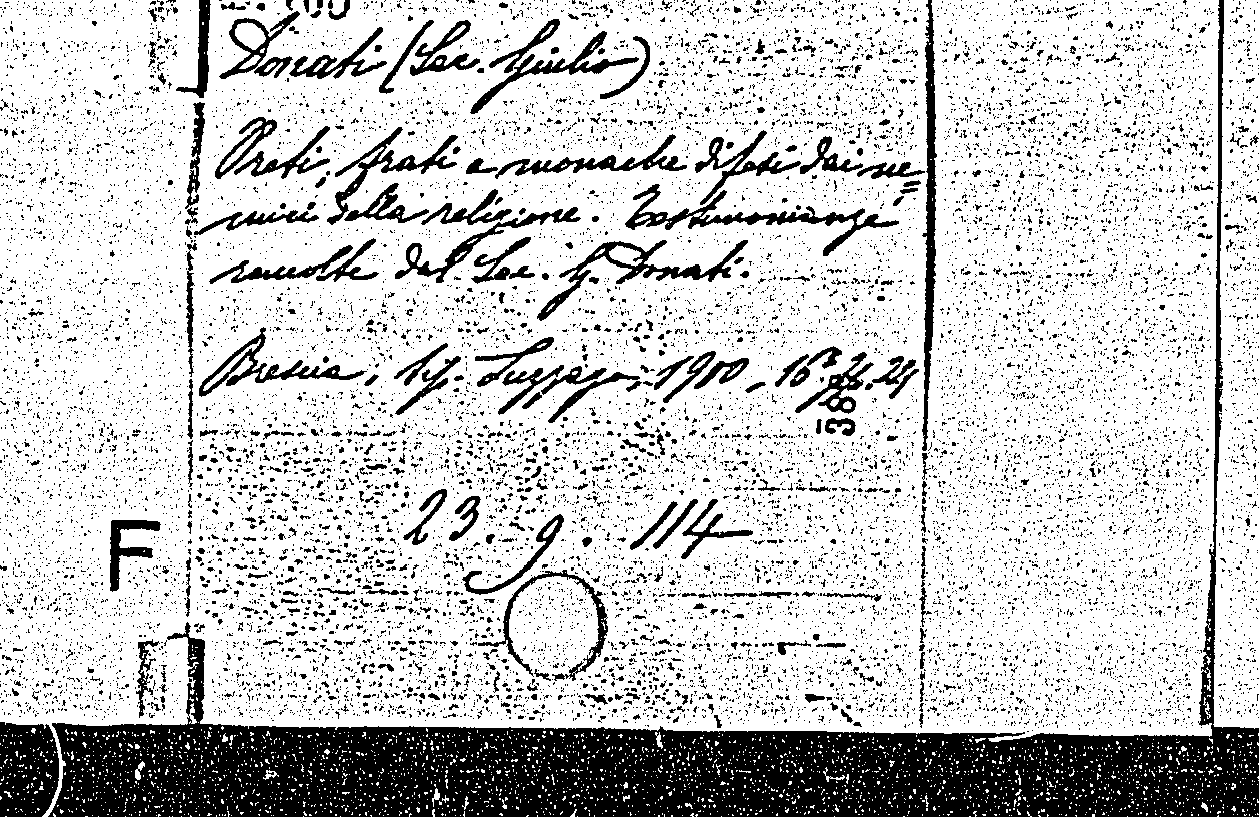 Donati (Sac. Giulio)
Preti, frati e monache difesi dai ne=
mici della religione. Testimonianze
raccolte dal Sac. G. Donati.
Brescia, tip. Luzzago, 1900, 16°, p. 24
38
23. g. 114
F